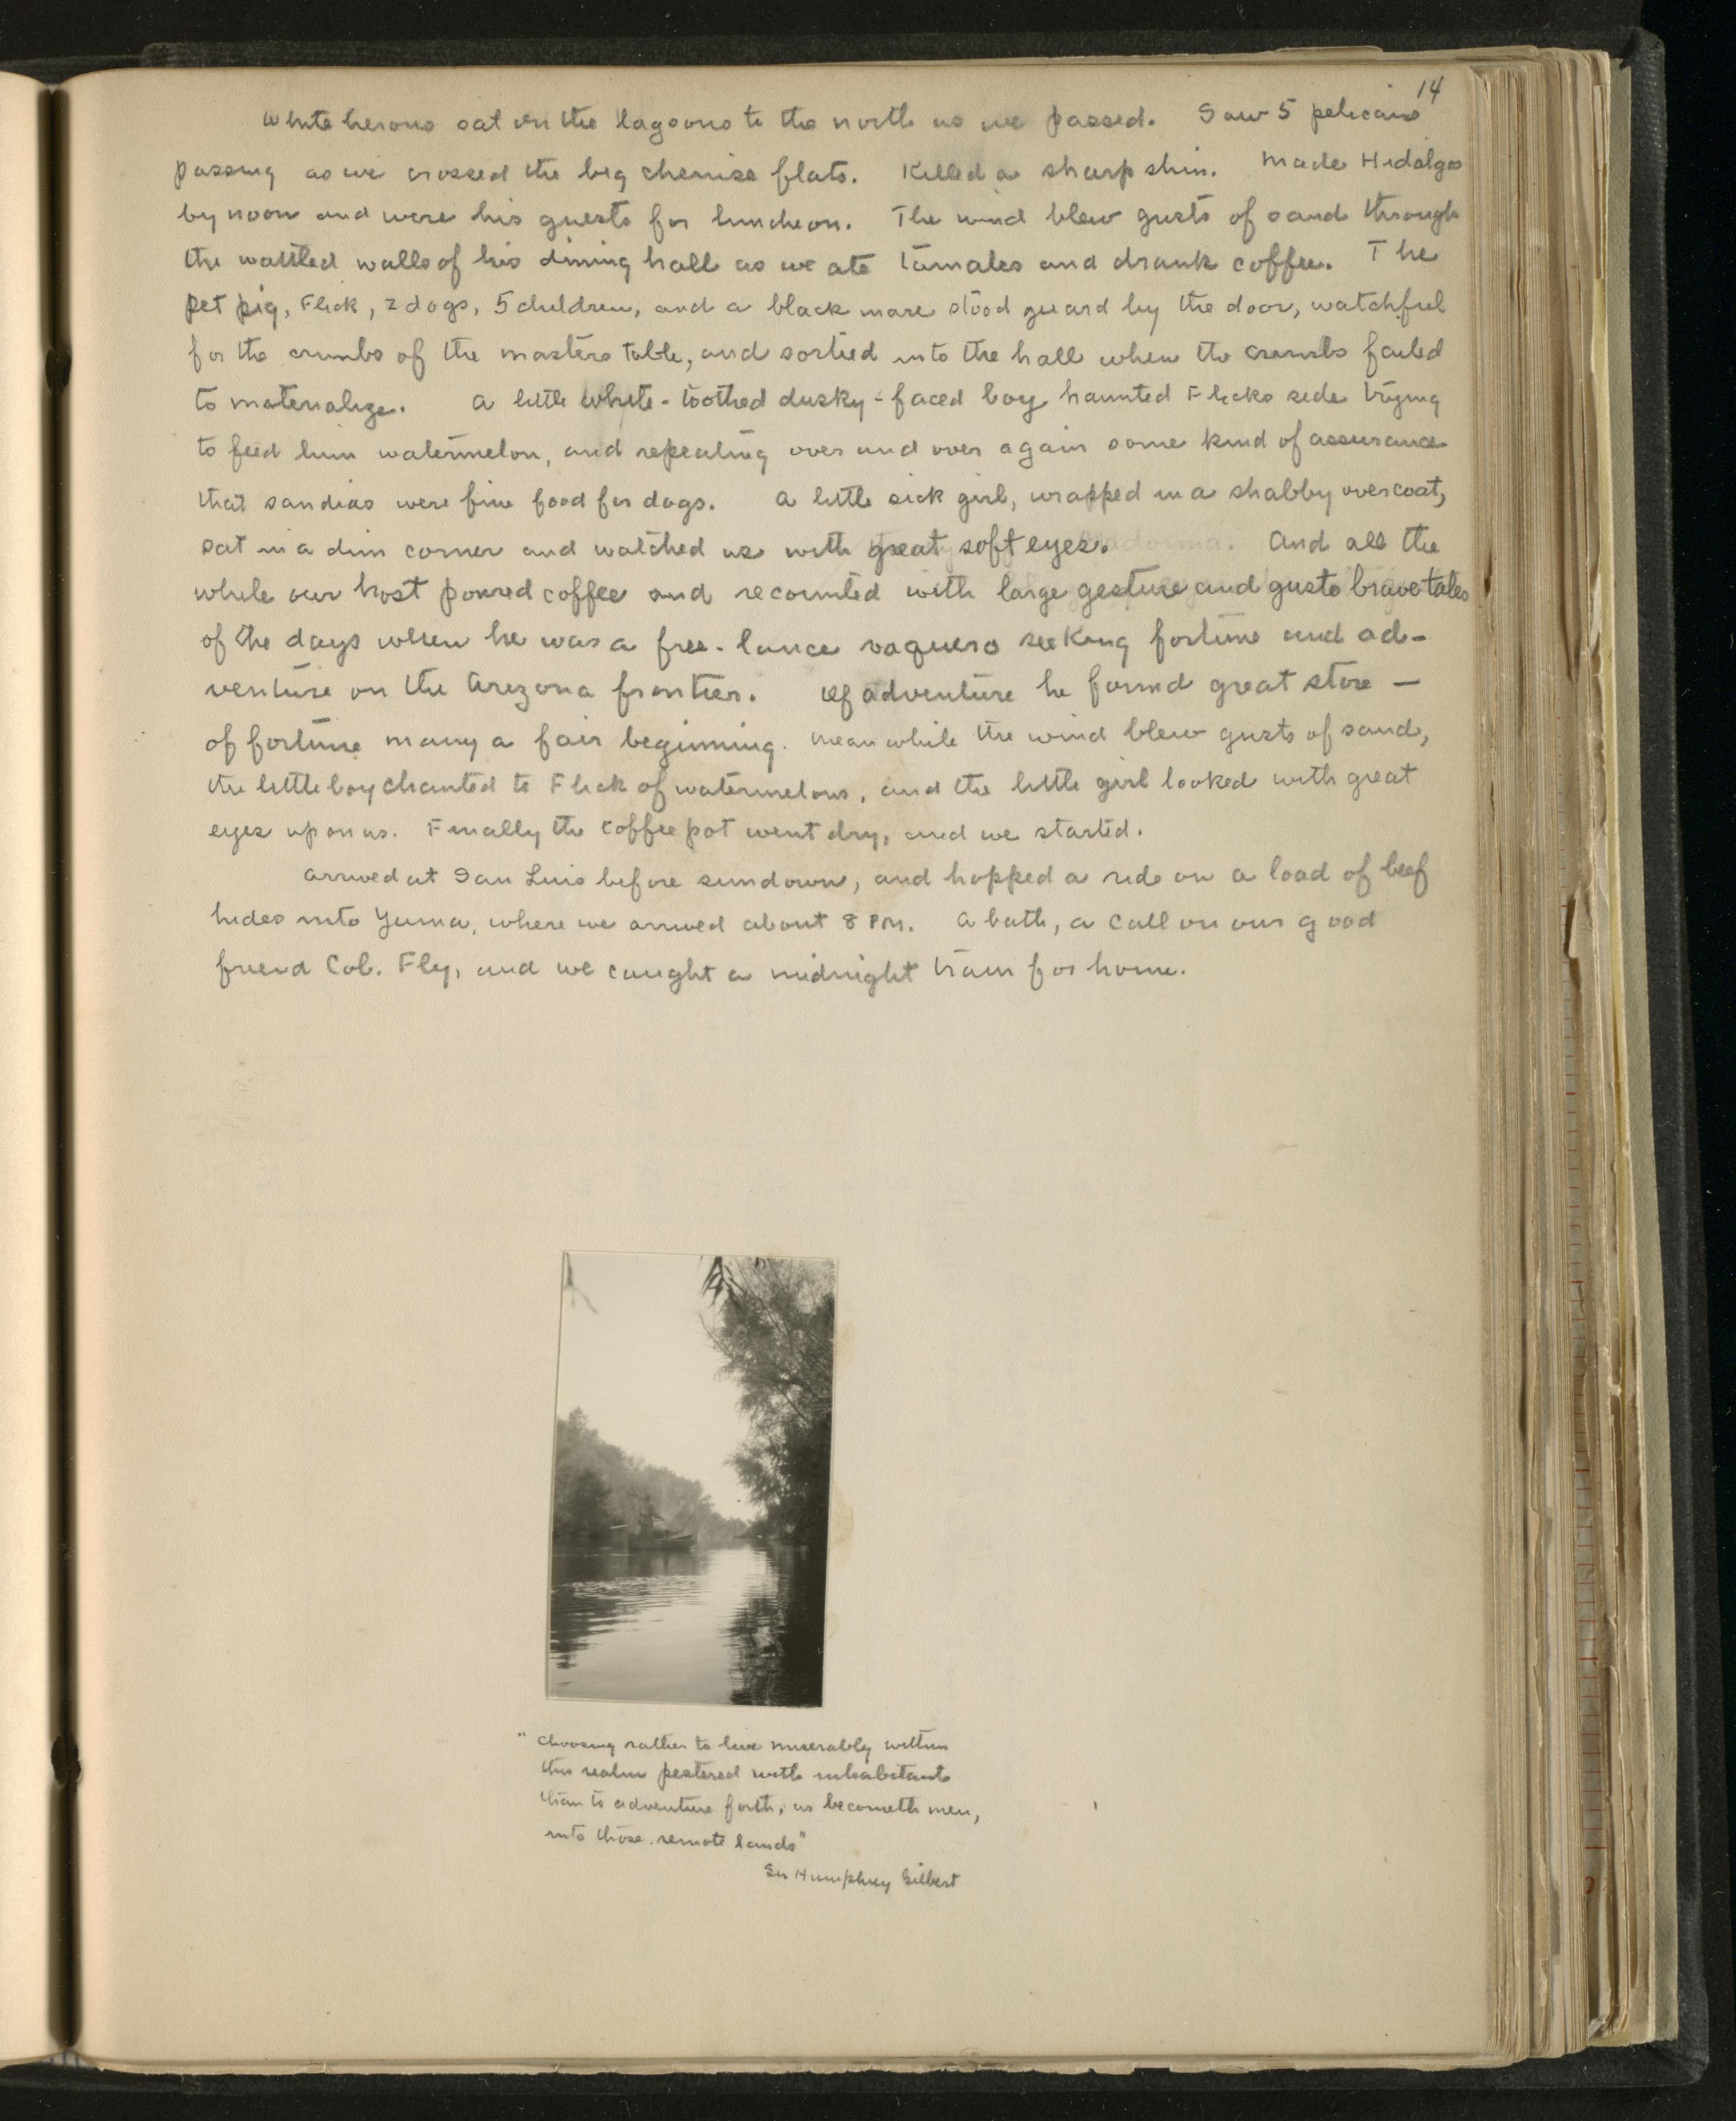 14
White herons sat on the lagoons to the north as we passed. Saw 5 pelicans
passing as we crossed the big chemise flats. Killed a sharpshin. Made Hidalgos
by noon and were his guests for luncheon. The wind blew gusts of sand through
the wattled walls of his dining hall as we ate tamales and drank coffee. The
pet pig, Flick, 2 dogs, 5 children, and a black mare stood guard by the door, watchful
for the crumbs of the masters table, and sortied into the hall when the crumbs failed
to materialize. A little white-toothed dusky-faced boy haunted Flicks side trying
to feed him watermelon, and repeating over and over again some kind of assurance
that sandias were fine food for dogs. A little sick girl, wrapped in a shabby overcoat,
sat in a dim corner and watched us with great soft eyes. And all the
while our host poured coffee and recounted with large gesture and gusto brave tales
of the days when he was a free-lance vaquero seeking fortune and ad-
venture on the Arizona frontier. Of adventure he found great store —
of fortune many a fair beginning. Meanwhile the wind blew gusts of sand,
the little boy chanted to Flick of watermelons, and the little girl looked with great
eyes upon us. Finally the coffee pot went dry, and we started.
Arrived at San Luis before sundown, and hopped a ride on a load of beef
hides into Yuma, where we arrived about 8 PM. A bath, a call on our good
friend Col. Fly, and we caught a midnight train for home.
"Choosing rather to live miserably within
this realm pestered with inhabitants
than to adventure forth, as becometh men,
into those remote lands"
Sir Humphrey Gilbert